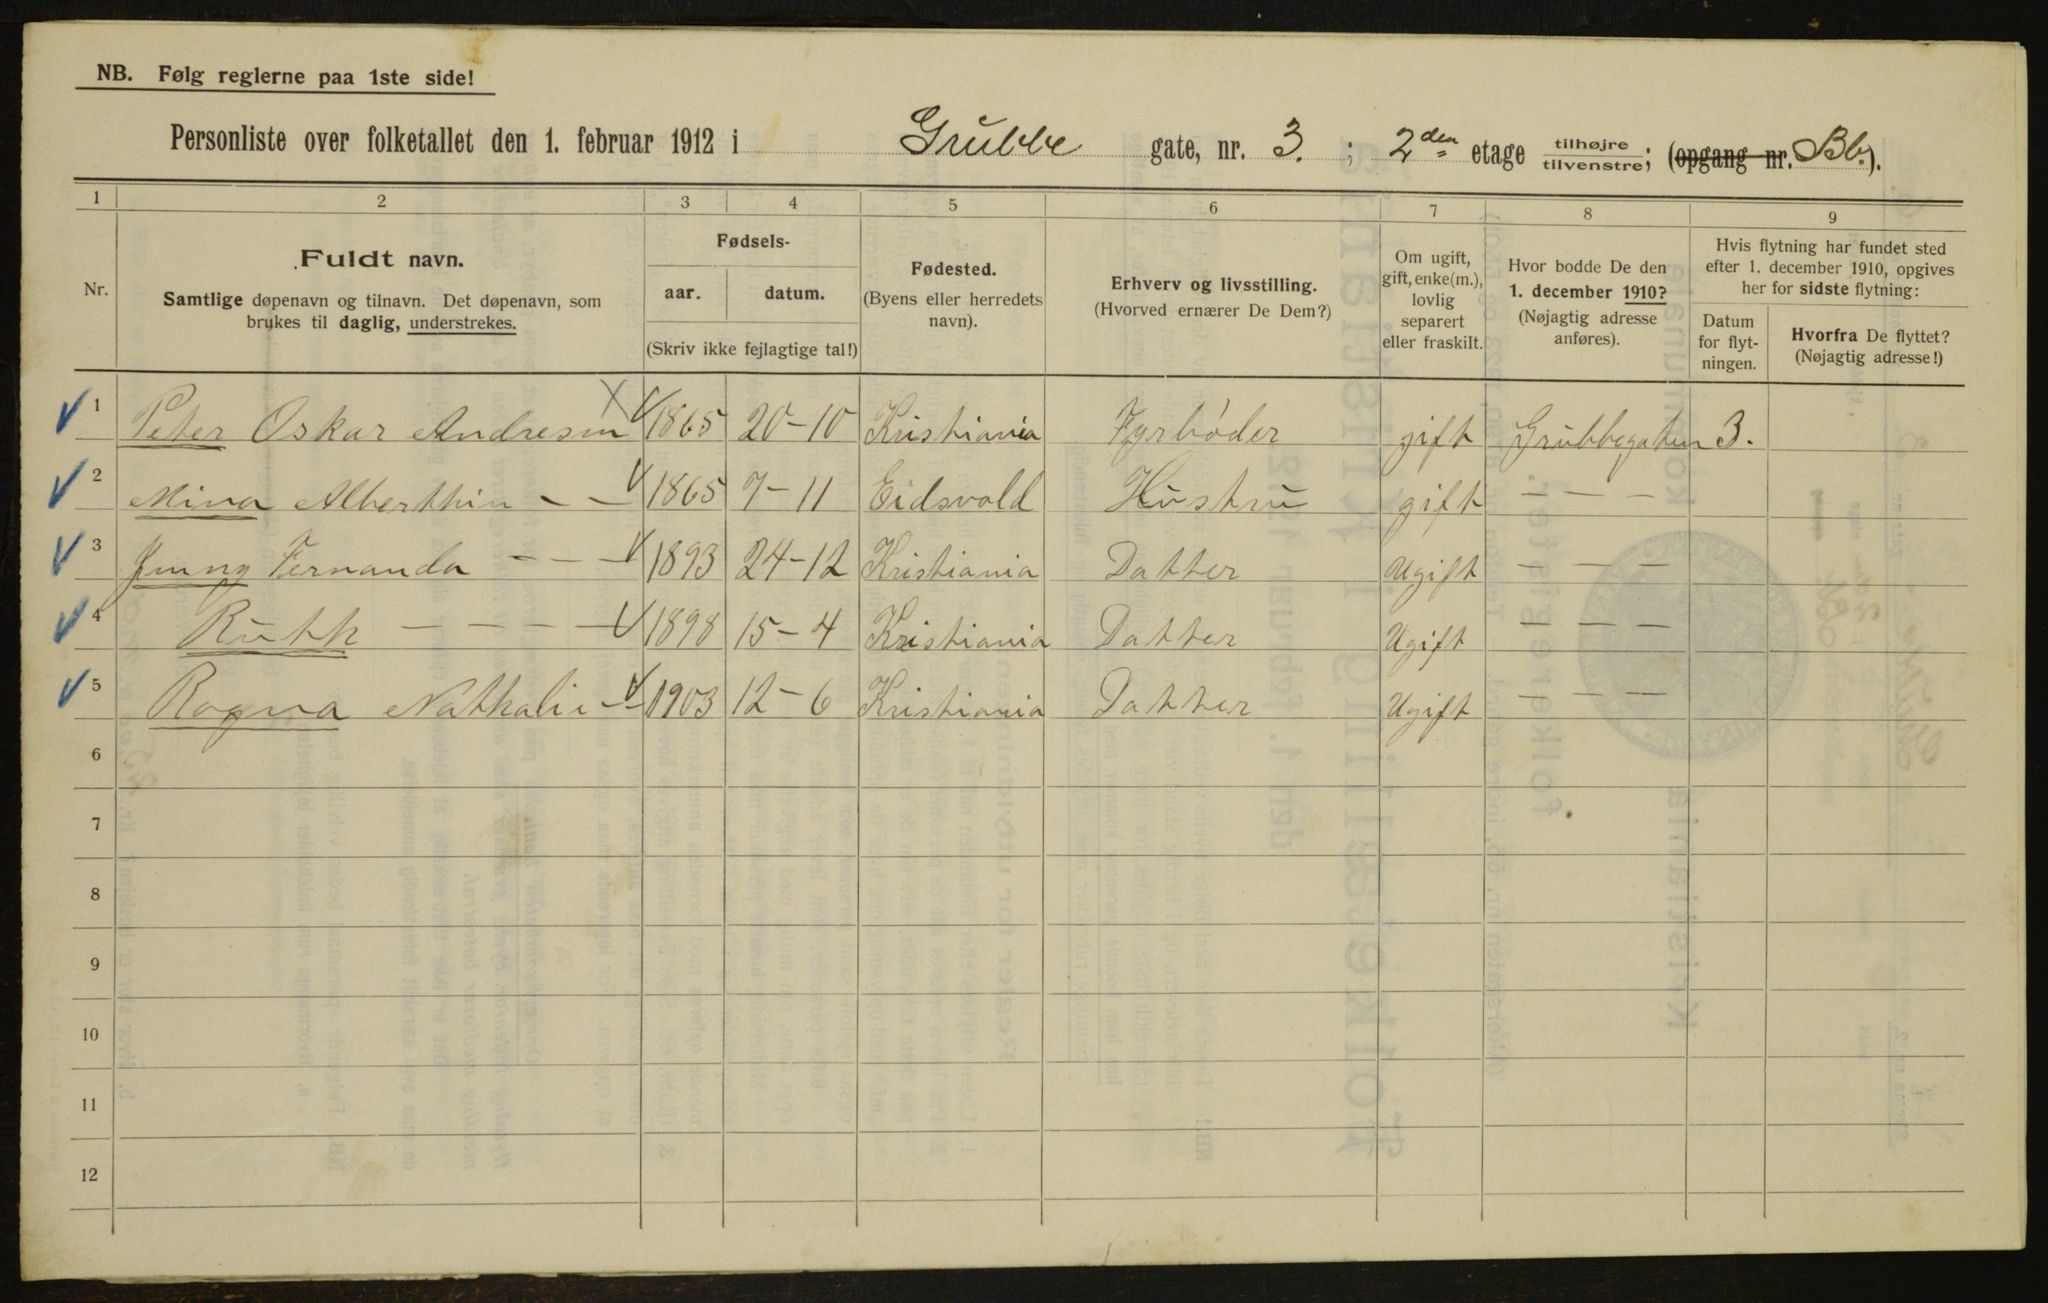 NB. Følg reglerne paa 1ste side!
Personliste over folketallet den 1. februar 1912 i Grubbe gate, nr. 3. ; 2den etage tilhøjre / tilvenstre; (opgang nr. Bb.).
1 2 3 4 5 6 7 8 9
Nr.
Fuldt navn.
Samtlige døpenavn og tilnavn. Det døpenavn, som
brukes til daglig, understrekes.
Fødsels-
aar. datum.
(Skriv ikke fejlagtige tal!)
Fødested.
(Byens eller herredets
navn).
Erhverv og livsstilling.
(Hvorved ernærer De Dem?)
Om ugift,
gift, enke(m.),
lovlig
separert
eller fraskilt.
Hvor bodde De den
1. december 1910?
(Nøjagtig adresse
anføres).
Hvis flytning har fundet sted
efter 1. december 1910, opgives
her for sidste flytning:
Datum
for flyt-
ningen.
Hvorfra De flyttet?
(Nøjagtig adresse!)
1 Peter Oskar Andresen 1865 20-10 Kristiania Fyrbøder gift Grubbegaten 3.
2 Mina Alberthin — — 1865 7-11 Eidsvold Hustru gift — — —
3 Jenny Fernanda — — — 1893 24-12 Kristiania Datter Ugift — — —
4 Ruth — — — — 1898 15-4 Kristiania Datter Ugift — — —
5 Ragna Nathalie — 1903 12-6 Kristiania Datter Ugift — — —
6
7
8
9
10
11
12